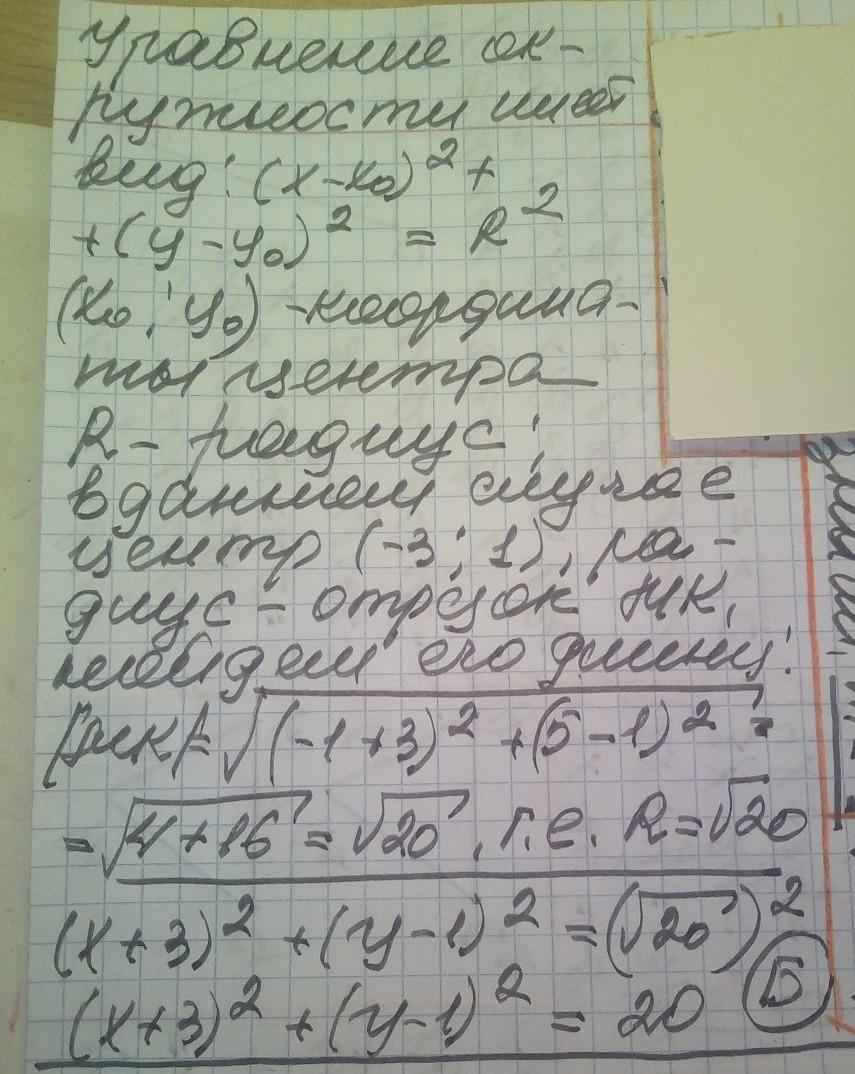 Уравнение ок-
ружности имеет
вид: (x-x₀)² +
+(y-y₀)² = R²
(x₀; y₀) -координа-
ты центра
R - радиус;
в данном случае
центр (-3; 1), ра-
диус - отрезок МК,
найдем его длину:
|МК|=√((-1+3)² +(5-1)²) =
=√(4+16) = √20, т.е. R=√20
(x+3)² +(y-1)² =(√20)²
(x+3)² +(y-1)² = 20 Б